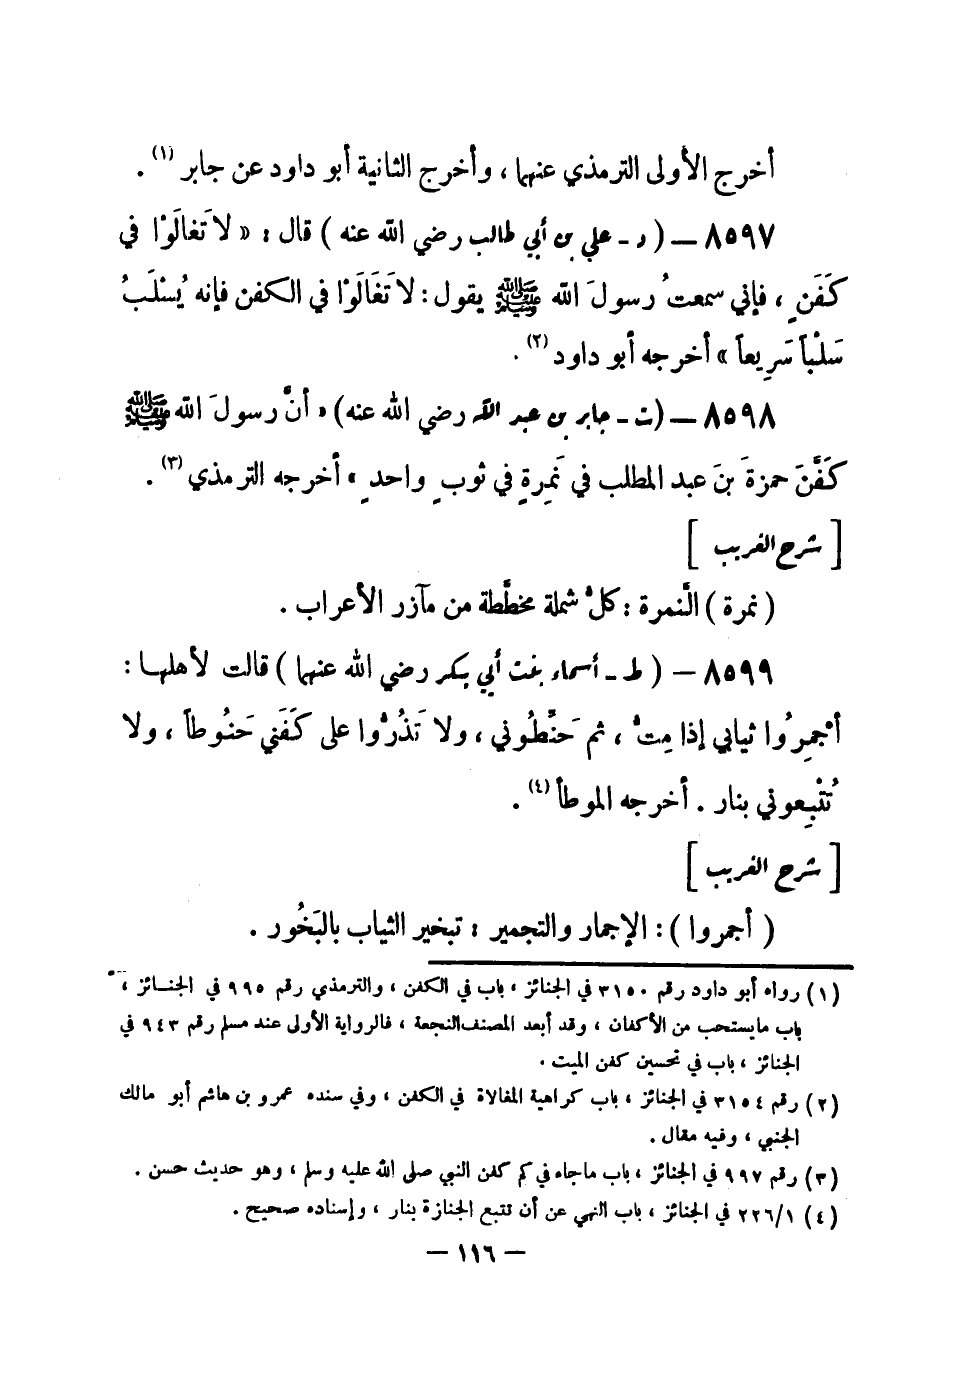 أخرج الأولى الترمذي عنهما ، وأخرج الثانية أبو داود عن جابر (١) .
٨٥٩٧ — ( د ـ علي بن أبي طالب رضي الله عنه ) قال : « لا تَغالَوْا في
كَفَنٍ ، فإني سمعتُ رسولَ الله ﷺ يقول : لا تَغَالَوْا في الكفن فإنه يُسْلَبُ
سَلْباً سَرِيعاً » أخرجه أبو داود (٢) .
٨٥٩٨ — (ت ـ جابر بن عبد الله رضي الله عنه) « أنَّ رسولَ الله ﷺ
كَفَّنَ حمزةَ بنَ عبد المطلب في نَمِرةٍ في ثوبٍ واحدٍ » أخرجه الترمذي (٣) .
[ شرح الغريب ]
( نمرة ) النَّمرة : كلُّ شملة مخطَّطة من مآزر الأعراب .
٨٥٩٩ — ( ط ـ أسماء بنت أبي بكر رضي الله عنهما ) قالت لأهلهـا :
أجْمِرُوا ثيابي إذا مِتُّ ، ثم حَنِّطُوني ، ولا تَذُرُّوا على كَفَني حَنُوطاً ، ولا
تُتْبِعوني بنار . أخرجه الموطأ (٤) .
[ شرح الغريب ]
( أجمروا ) : الإجمار والتجمير : تبخير الثياب بالبَخُور .
(١) رواه أبو داود رقم ٣١٥٠ في الجنائز ، باب في الكفن ، والترمذي رقم ٩٩٥ في الجنـائز ،
باب مايستحب من الأكفان ، وقد أبعد المصنف النجعة ، فالرواية الأولى عند مسلم رقم ٩٤٣ في
الجنائز ، باب في تحسين كفن الميت .
(٢) رقم ٣١٥٤ في الجنائز ، باب كراهية المغالاة في الكفن ، وفي سنده عمرو بن هاشم أبو مالك
الجنبي ، وفيه مقال .
(٣) رقم ٩٩٧ في الجنائز ، باب ماجاء في كم كفن النبي صلى الله عليه وسلم ، وهو حديث حسن .
(٤) ٢٢٦/١ في الجنائز ، باب النهي عن أن تتبع الجنازة بنار ، وإسناده صحيح .
— ١١٦ —